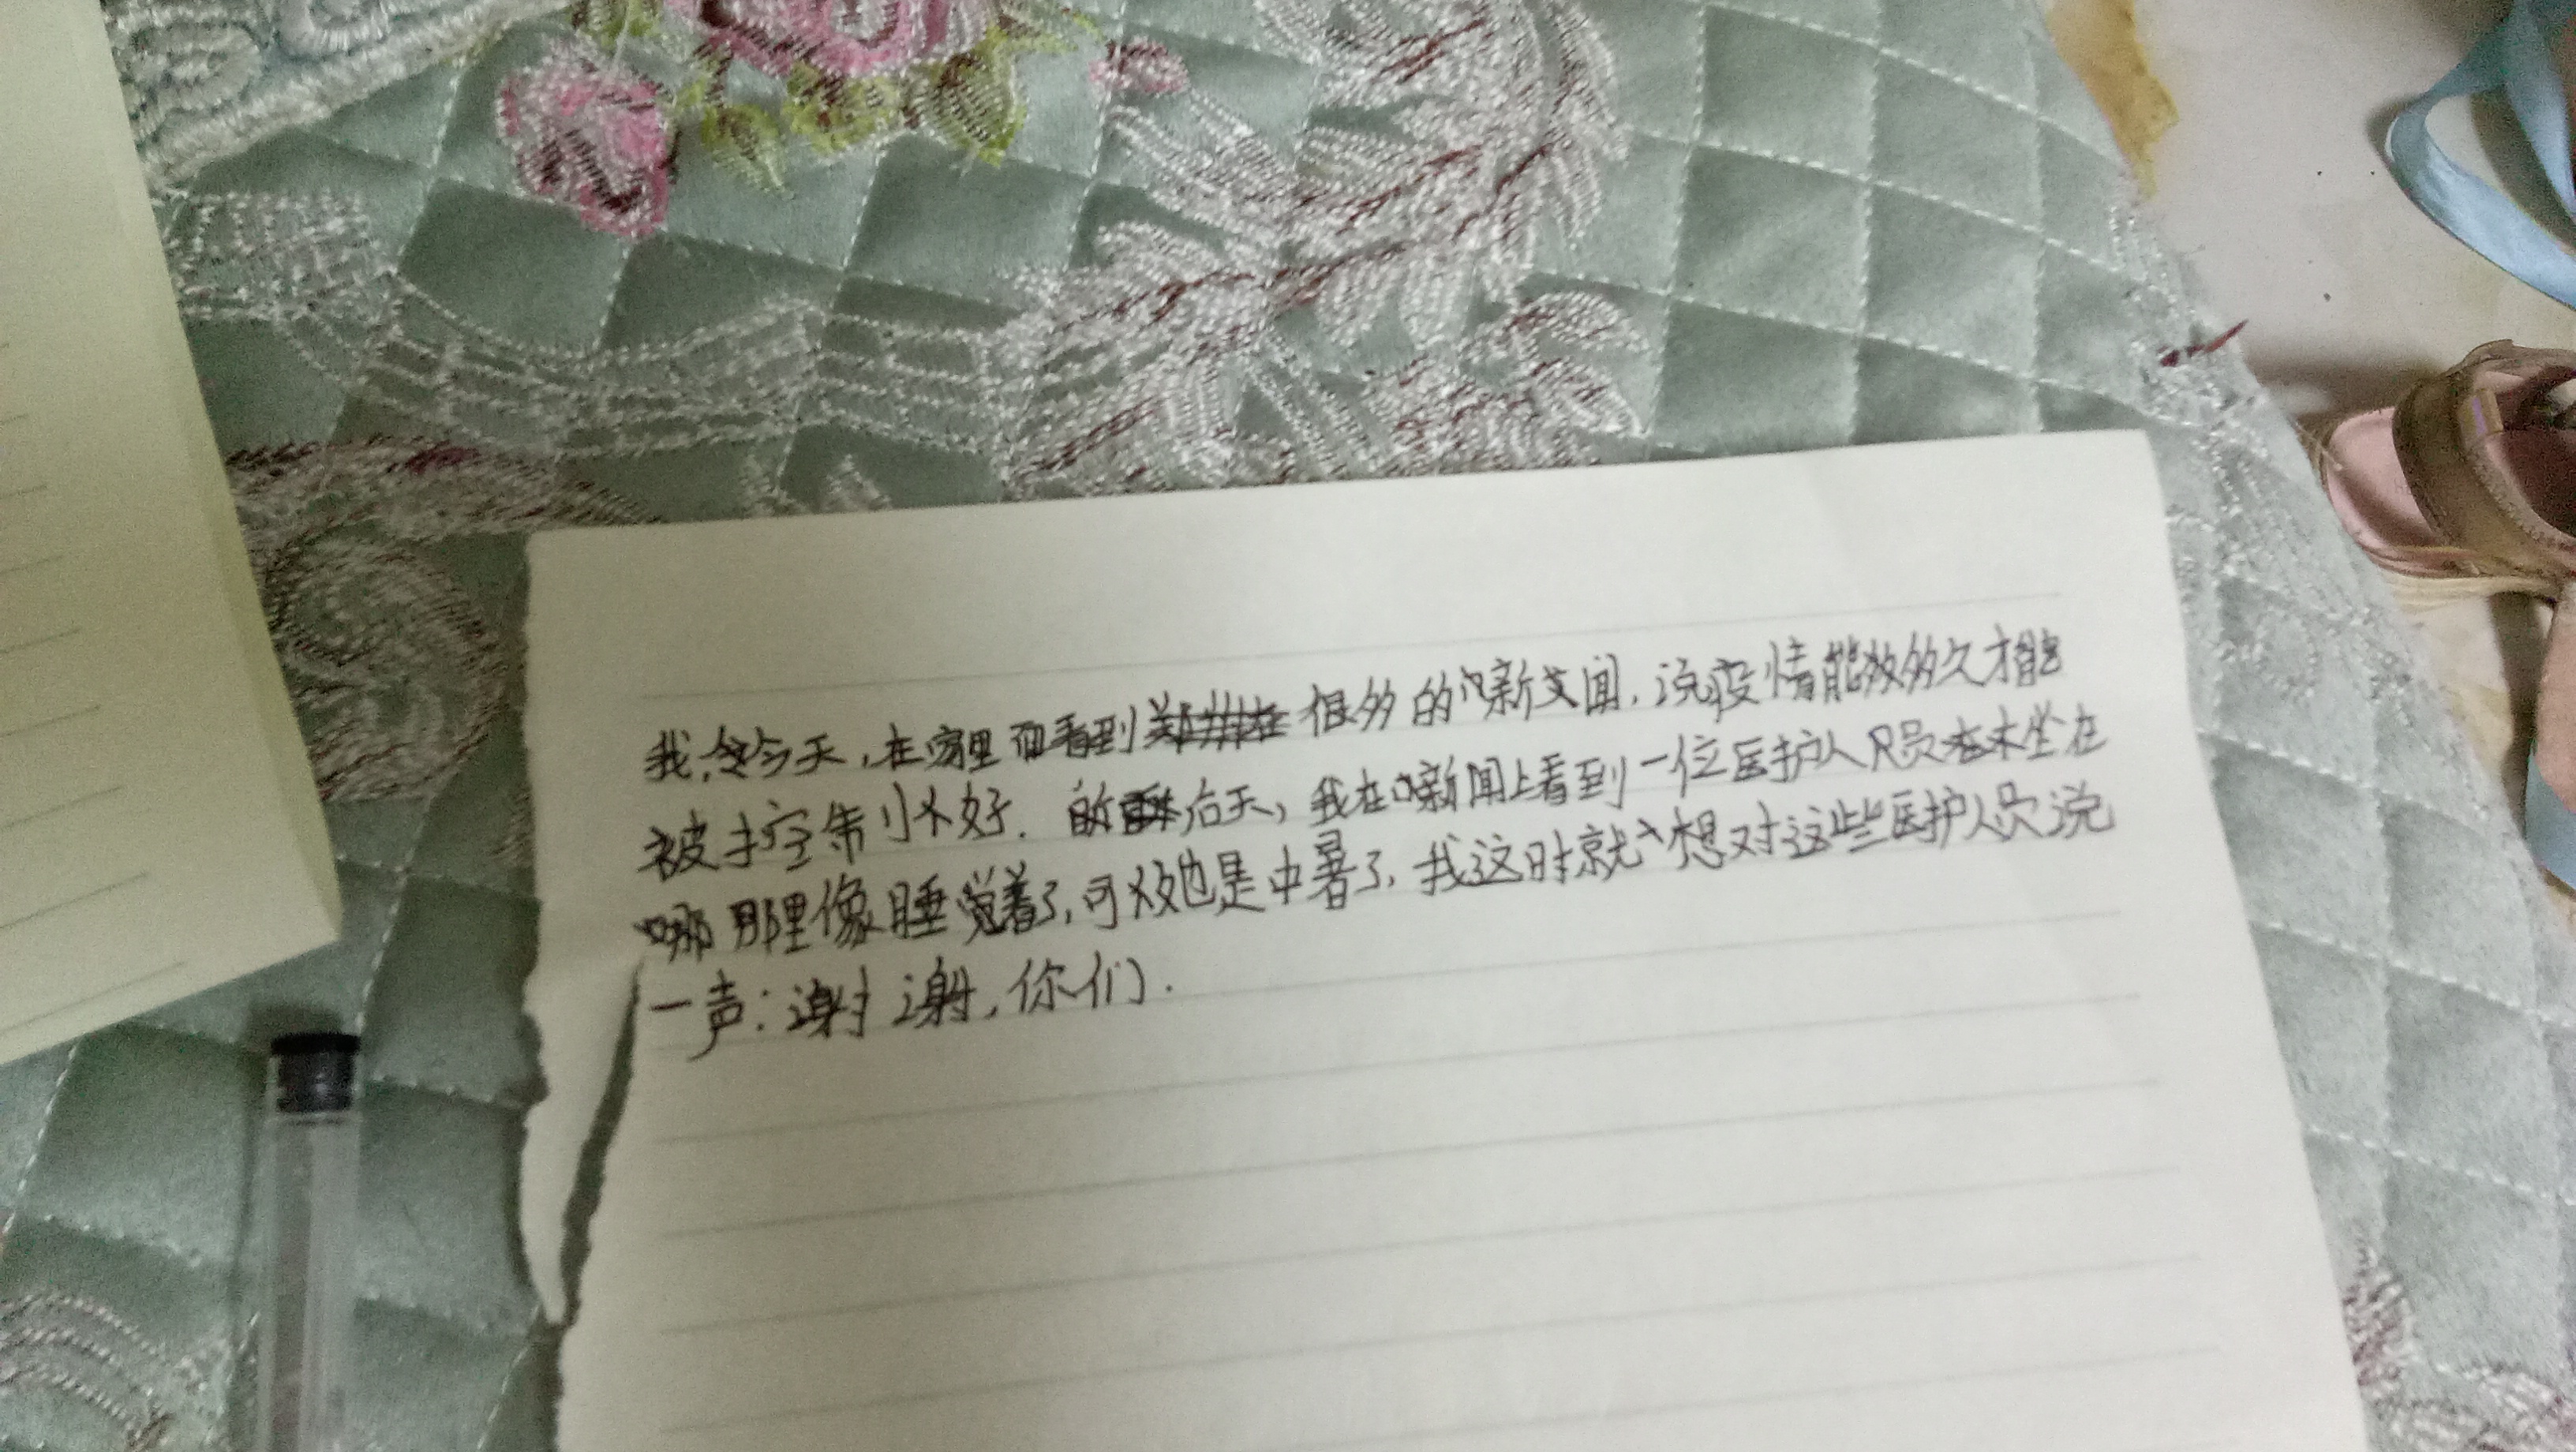 我,今天,在家里面看到很多的新文闻,说疫情能够多久才能
被控制小好.前后天,我在新闻上看到一位医护人员本来坐在
哪那里像睡觉着了,可以也是中暑了,我这时就想对这些医护人员说
一声:谢谢,你们.